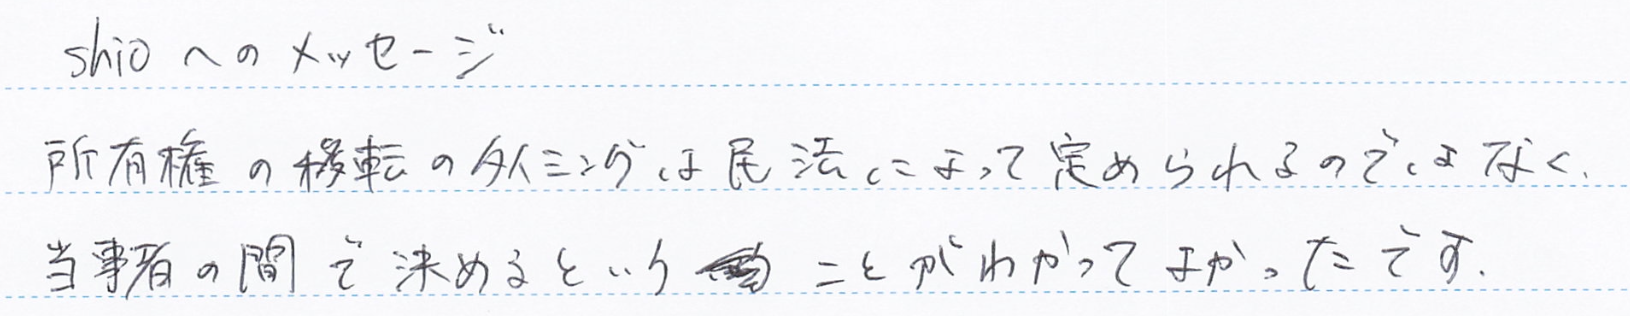 shioへのメッセージ
所有権の移転のタイミングは民法によって定められるのではなく、
当事者の間で決めるということがわかってよかったです.